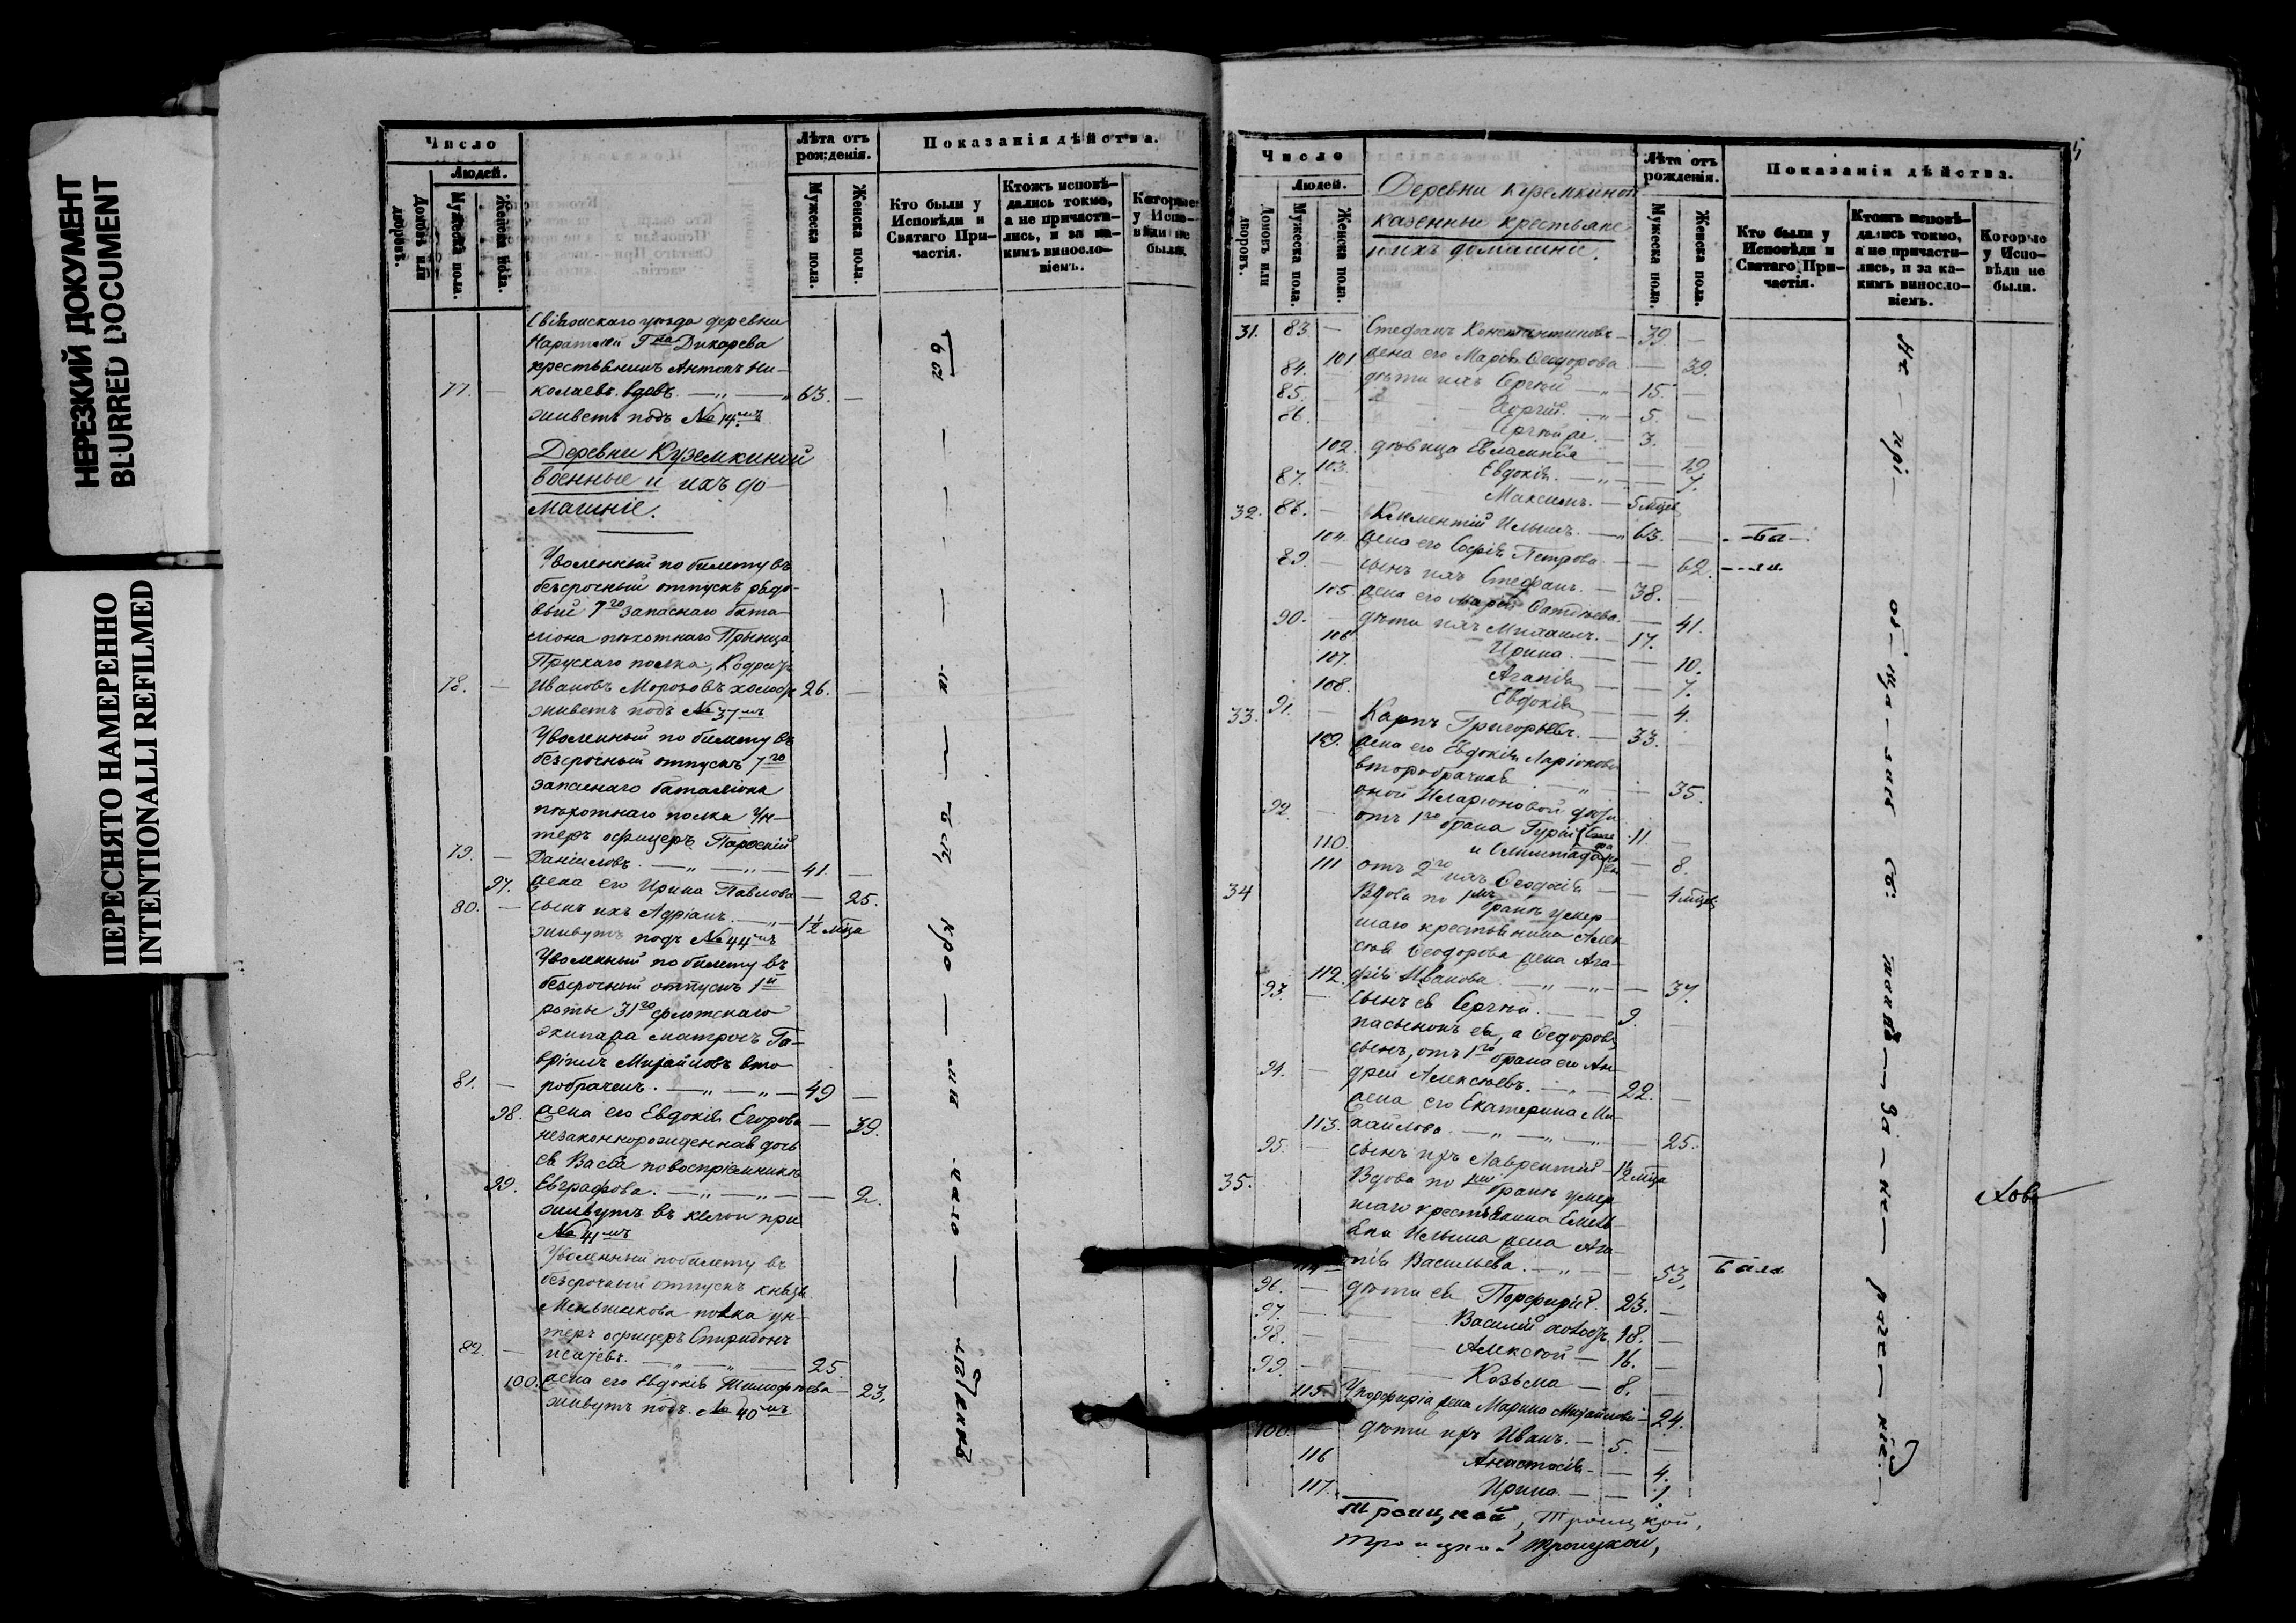 НЕРЕЗКИЙ ДОКУМЕНТ
BLURRED DOCUMENT
ПЕРЕСНЯТО НАМЕРЕННО
INTENTIONALLI REFILMED
Число
Людей.
Домовъ или дворовъ.
Мужеска пола.
Женска пола.
Лѣта отъ рожденія.
Мужеска пола.
Женска пола.
Показанія дѣйства.
Кто были у Исповѣди и Святаго Причастія.
Ктожъ исповѣдались токмо, а не причастились, и за какимъ винословіемъ.
Которые у Исповѣди не были.
уѣзда деревни
Гна Дикарева
крестьянинъ Антонъ Ни-
77. — колаевъ вдовъ. — „ — „ 63. —
живетъ подъ № 14мъ
Деревни Куземкиной
военные и ихъ до-
машніе.
Уволенный по билету въ
безсрочный отпускъ рядо-
вый 7го запаснаго бата-
ліона пѣхотнаго Принца
Прускаго полка,
78. — Ивановъ Морозовъ холостъ 26. —
живетъ подъ № 37мъ
Уволенный по билету въ
безсрочный отпускъ 7го
запаснаго баталіона
пѣхотнаго полка Ун-
теръ офицеръ
79. — Даніиловъ. — „ — „ — 41. —
97. жена его Ирина Павлова — 25.
80. — сынъ ихъ Адріанъ. — „ — 1½ мца
живутъ подъ № 44мъ
Уволенный по билету въ
безсрочный отпускъ 1й
роты 31го флотскаго
экипажа матросъ Га-
вріилъ Михайловъ вто-
81. — робраченъ. — „ — „ — 49 —
98. жена его Евдокія Егорова — 39.
незаконнорожденная дочь
ея Васса по воспріемникѣ
99. Евграфова. — „ — „ — — 2.
живутъ въ кельи при
№ 41мъ
Уволенный по билету въ
безсрочный отпускъ князя
Меньшикова полка ун-
теръ офицеръ Спиридонъ
82. — Исаевъ. — „ — „ — 25
100. жена его Евдокія Тимофѣева — 23.
живутъ подъ № 40мъ
5
Число
Людей.
Домовъ или дворовъ.
Мужеска пола.
Женска пола.
Деревни Куземкиной
казенные крестьяне
и ихъ домашніе.
Лѣта отъ рожденія.
Мужеска пола.
Женска пола.
Показанія дѣйства.
Кто были у Исповѣди и Святаго Причастія.
Ктожъ исповѣдались токмо, а не причастились, и за какимъ винословіемъ.
Которые у Исповѣди не были.
31. 83. — Стефанъ Константиновъ — 39. —
101 жена его Марія Ѳеодорова — 39.
84. дѣти ихъ Сергѣй — „ — 15. —
85. — Георгій. — „ — 5. —
86. — — 3. —
102. дѣвица — 19.
103. Евдокія. — „ — 7.
87. — Максимъ. — 5 мцев
32. 88. — Климентій Ильинъ. — „ 63. —
104. жена его Софія Петрова. — — 62.
89. — сынъ ихъ Стефанъ. — 38. —
105. жена его Марія — 41.
90. — дѣти ихъ Михаилъ. — 17.
106 Ирина. — — 10.
107. Агапія — — 7.
108. Евдокія — — 4.
33. 91. — Карпъ Григорьевъ. — 33. —
109. жена его Евдокія Ларіонова
второбрачная — „ — 35.
оной Иларіоновой дѣти
92. — отъ 1го брака Гурій 11. —
110. и Олимпіада — 8.
111 отъ 2го ихъ Ѳеодосія — — 4 мцев
34 Вдова по 1мъ бракѣ умер-
шаго крестьянина Алек-
сѣя Ѳеодорова жена Ага-
112. фія Иванова — „ — „ — 37.
93. — сынъ ея Сергѣй — 9. —
пасынокъ ея, а Ѳедоровъ
сынъ, отъ 1го брака его Ан-
94. — дрей Алексѣевъ. — „ — 22. —
жена его Екатерина Ми-
113. хайлова — „ — „ — „ — 25.
95. — сынъ ихъ Лаврентій — 1½ мца
35. Вдова по 1мъ бракѣ умер-
шаго крестьянина Емель-
яна Ильина жена Ага-
114 пія Васильева. — „ — 53, была
96. — дѣти ея Порфирій. 23. —
97. — Василій холостъ. 18. —
98. — Алексѣй — 16. —
99. — Козьма — 8. —
115. У Порфирія жена Марина Михайлова — 24.
100. — дѣти ихъ Иванъ. — 5. —
116 Анастасія — — 4.
117. Ирина. — — 1.
Троицкой, Троицкой,
Троицкой Троицкой,